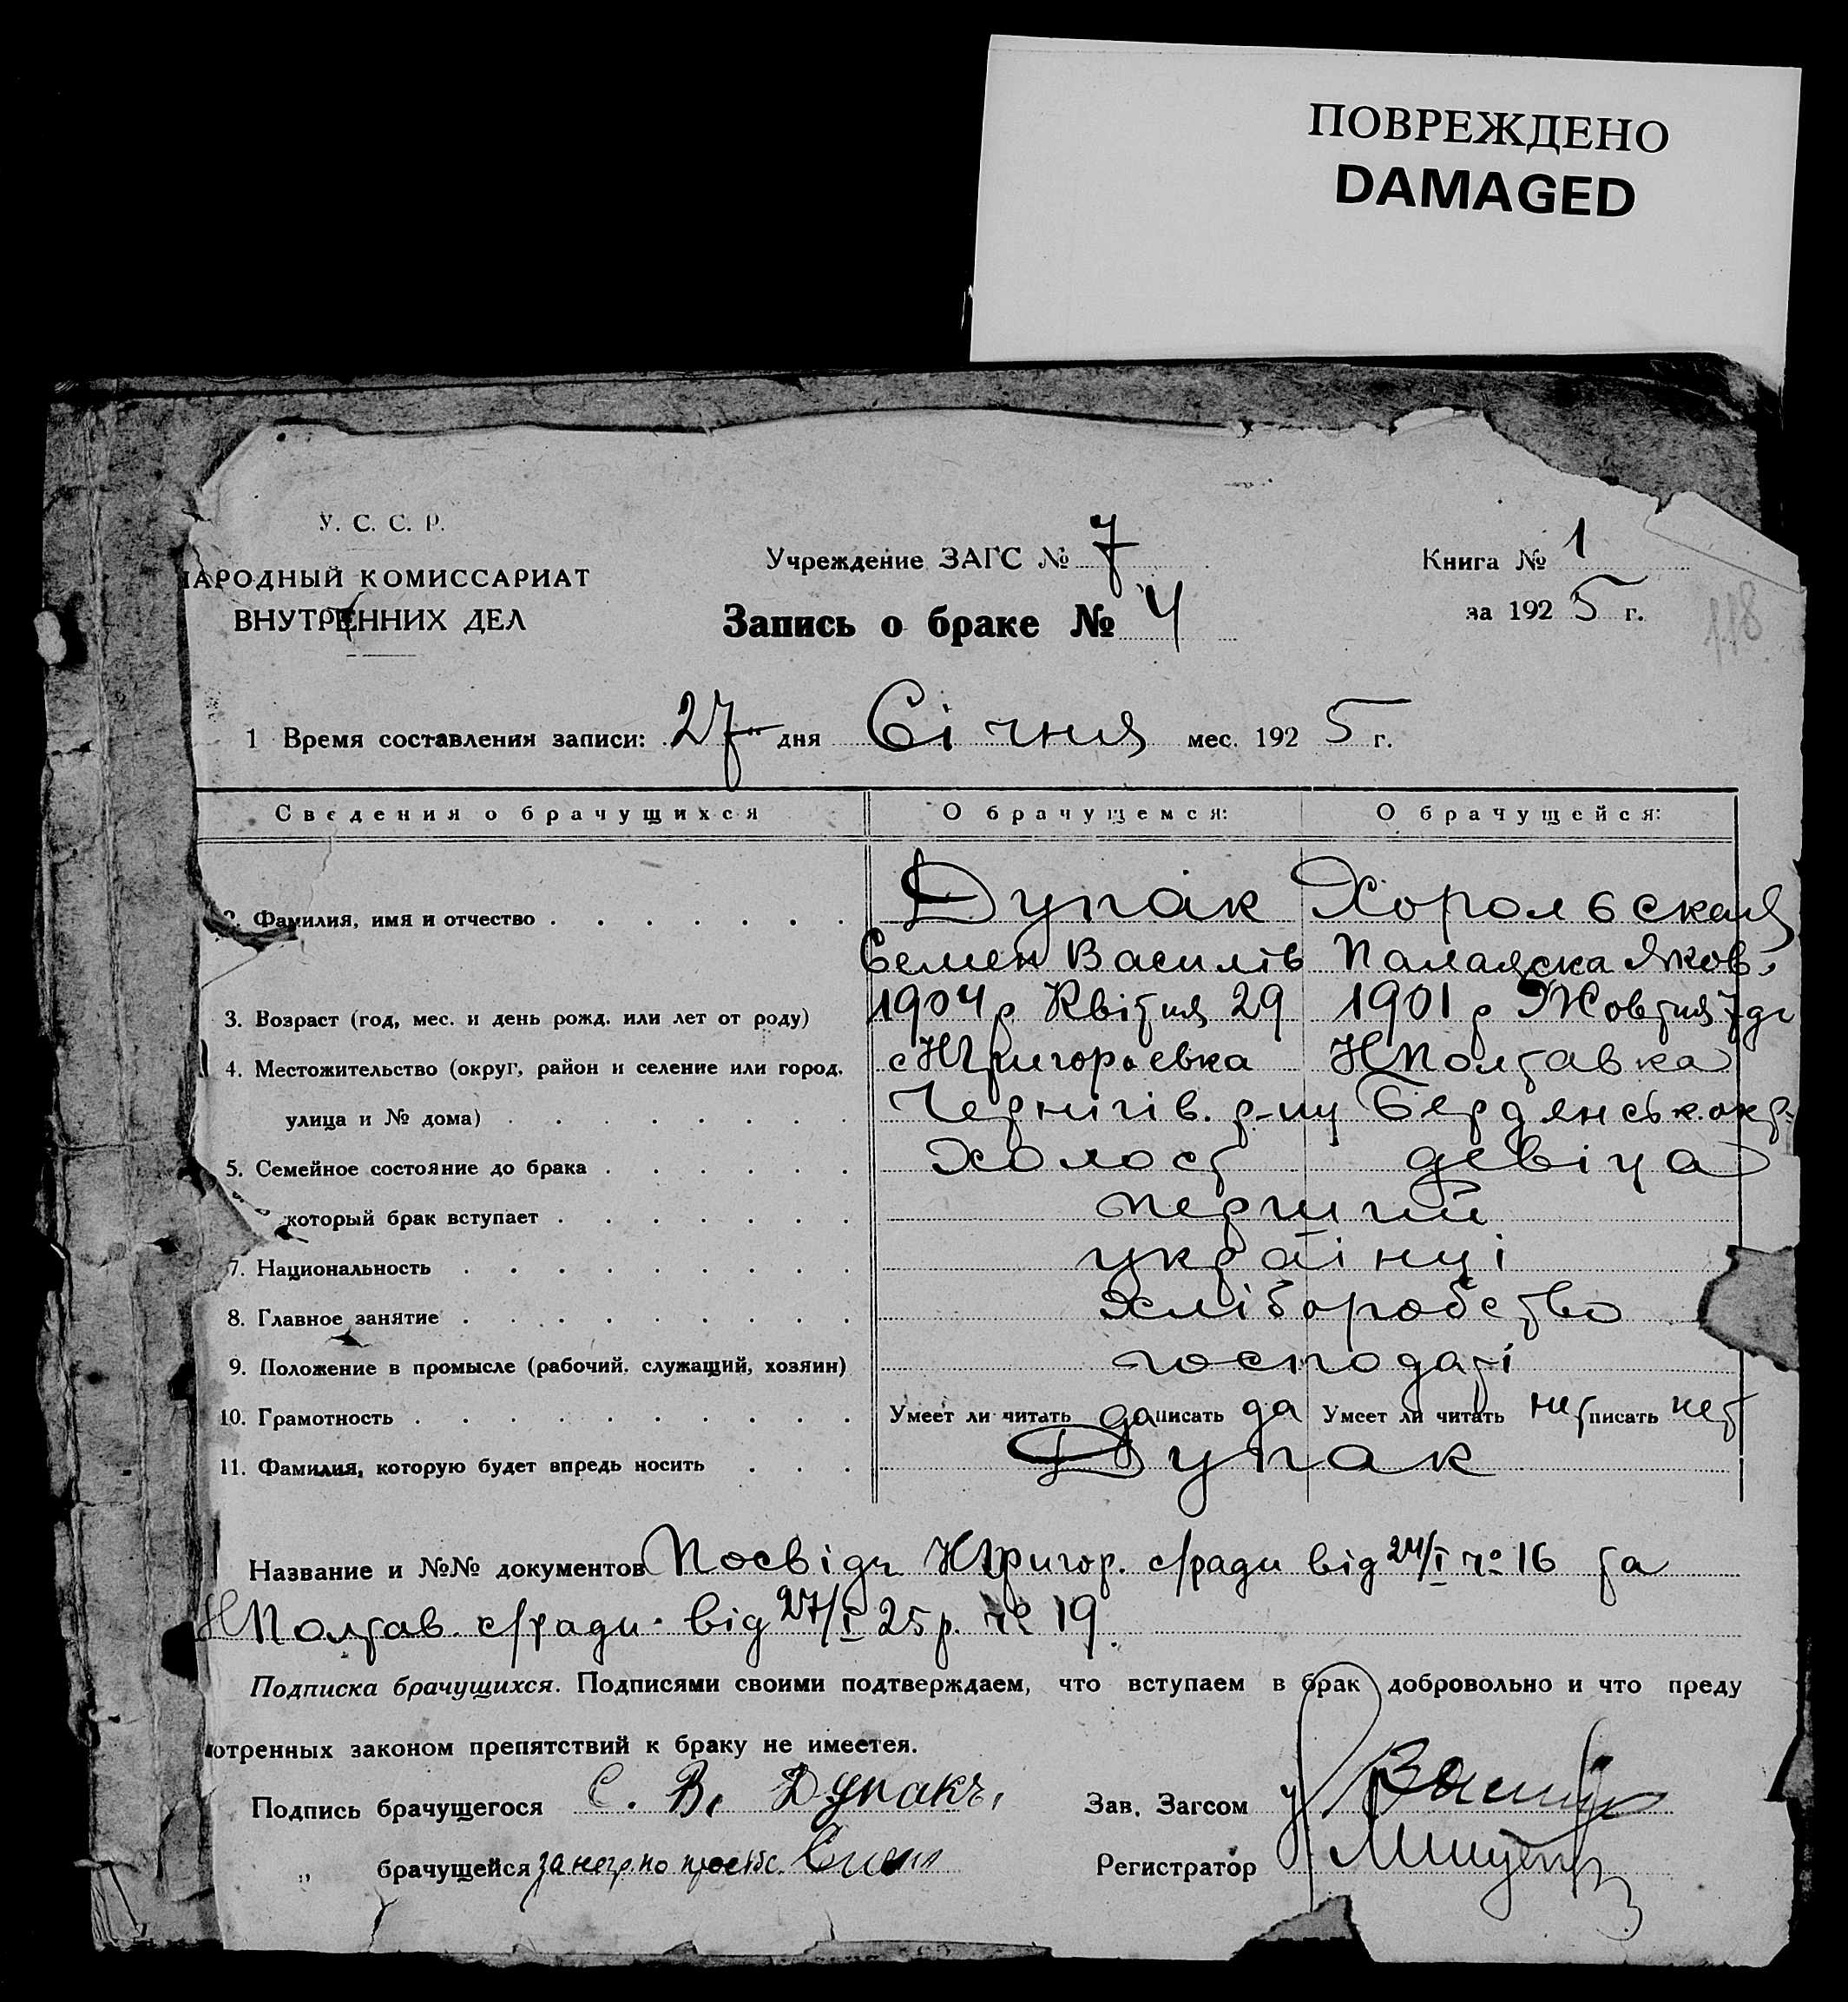 ПОВРЕЖДЕНО
DAMAGED
У. С. С. Р.
НАРОДНЫЙ КОМИССАРИАТ
ВНУТРЕННИХ ДЕЛ
Учреждение ЗАГС № 7
Запись о браке № 4
Книга № 1
за 1925 г.
118
1 Время составления записи: 27 дня Січня мес. 1925 г.
Сведения о брачущихся О брачущемся: О брачущейся:
2. Фамилия, имя и отчество Дупак Хорольская
Семен Василів Палажка Яков.
3. Возраст (год, мес. и день рожд. или лет от роду) 1904 р Квітня 29 1901 р Жовтня 7 дг
4. Местожительство (округ, район и селение или город, с НГригорьевка НПолтавка
улица и № дома) Чернігів. р-ну Бердянськ. окр.
5. Семейное состояние до брака холост девіца
который брак вступает перший
7. Национальность українці
8. Главное занятие хліборобство
9. Положение в промысле (рабочий, служащий, хозяин) господарі
10. Грамотность Умеет ли читать да писать да Умеет ли читать нет писать нет
11. Фамилия, которую будет впредь носить Дупак
Название и №№ документов Посвідч НГригор. с/ради від 24/I № 16 та
НПолтав. с/ради від 27/I 25 р. № 19.
Подписка брачущихся. Подписями своими подтверждаем, что вступаем в брак добровольно и что преду
отренных законом препятствий к браку не имеется.
Подпись брачущегося С. В. Дупакъ, Зав. Загсом
„ брачущейся за негр. по прозьбе Регистратор